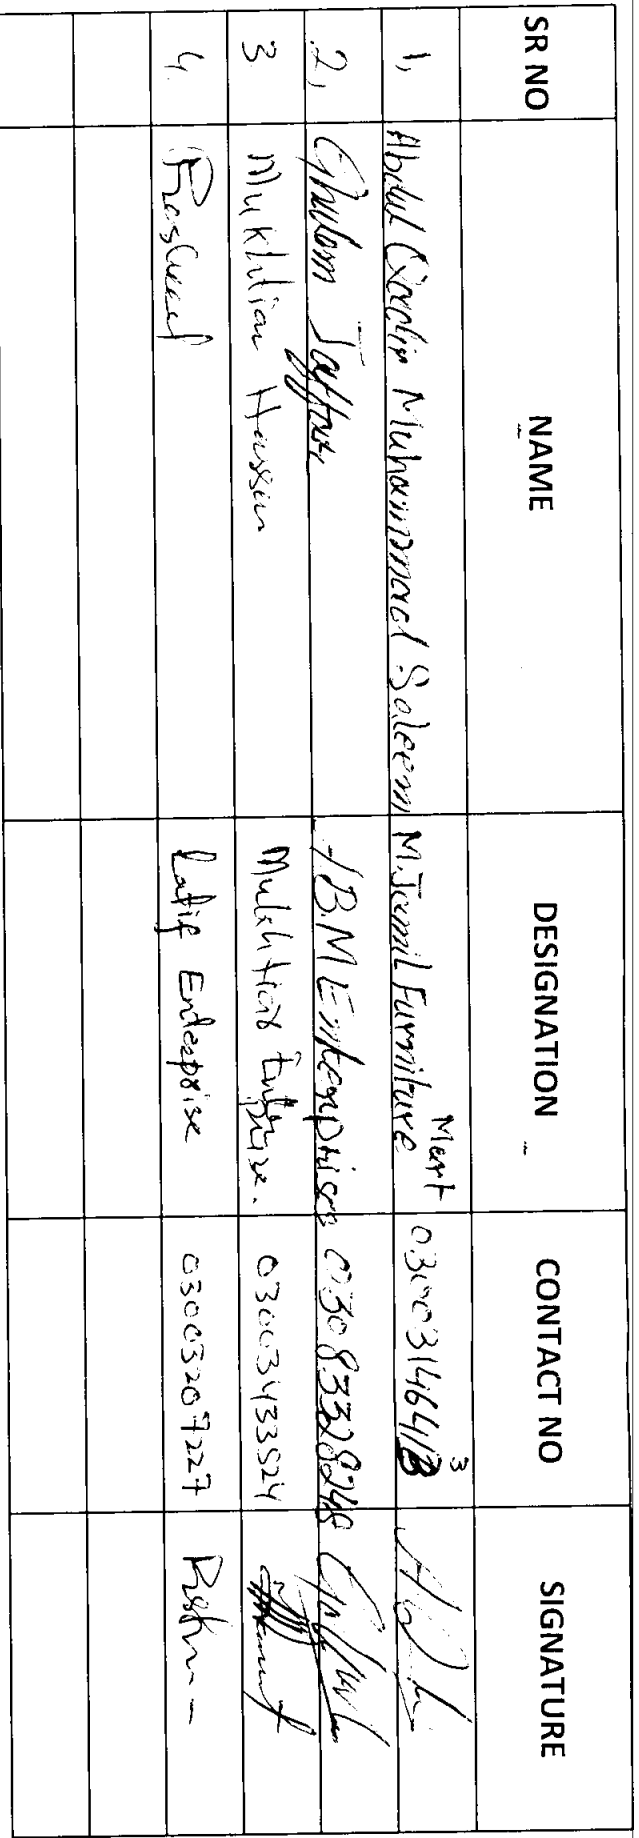 SR NO NAME DESIGNATION CONTACT NO SIGNATURE
1, Abdul Qadir Muhammad Saleem M. Jamil Furniture Mart
2, Ghulam Jaffar, BM Enterprises 03083328248
3 Mukhtiar Hassan Mukhtiar Enterprise. 03003433524
4. Rasheed Latif Enterprise 03003207227